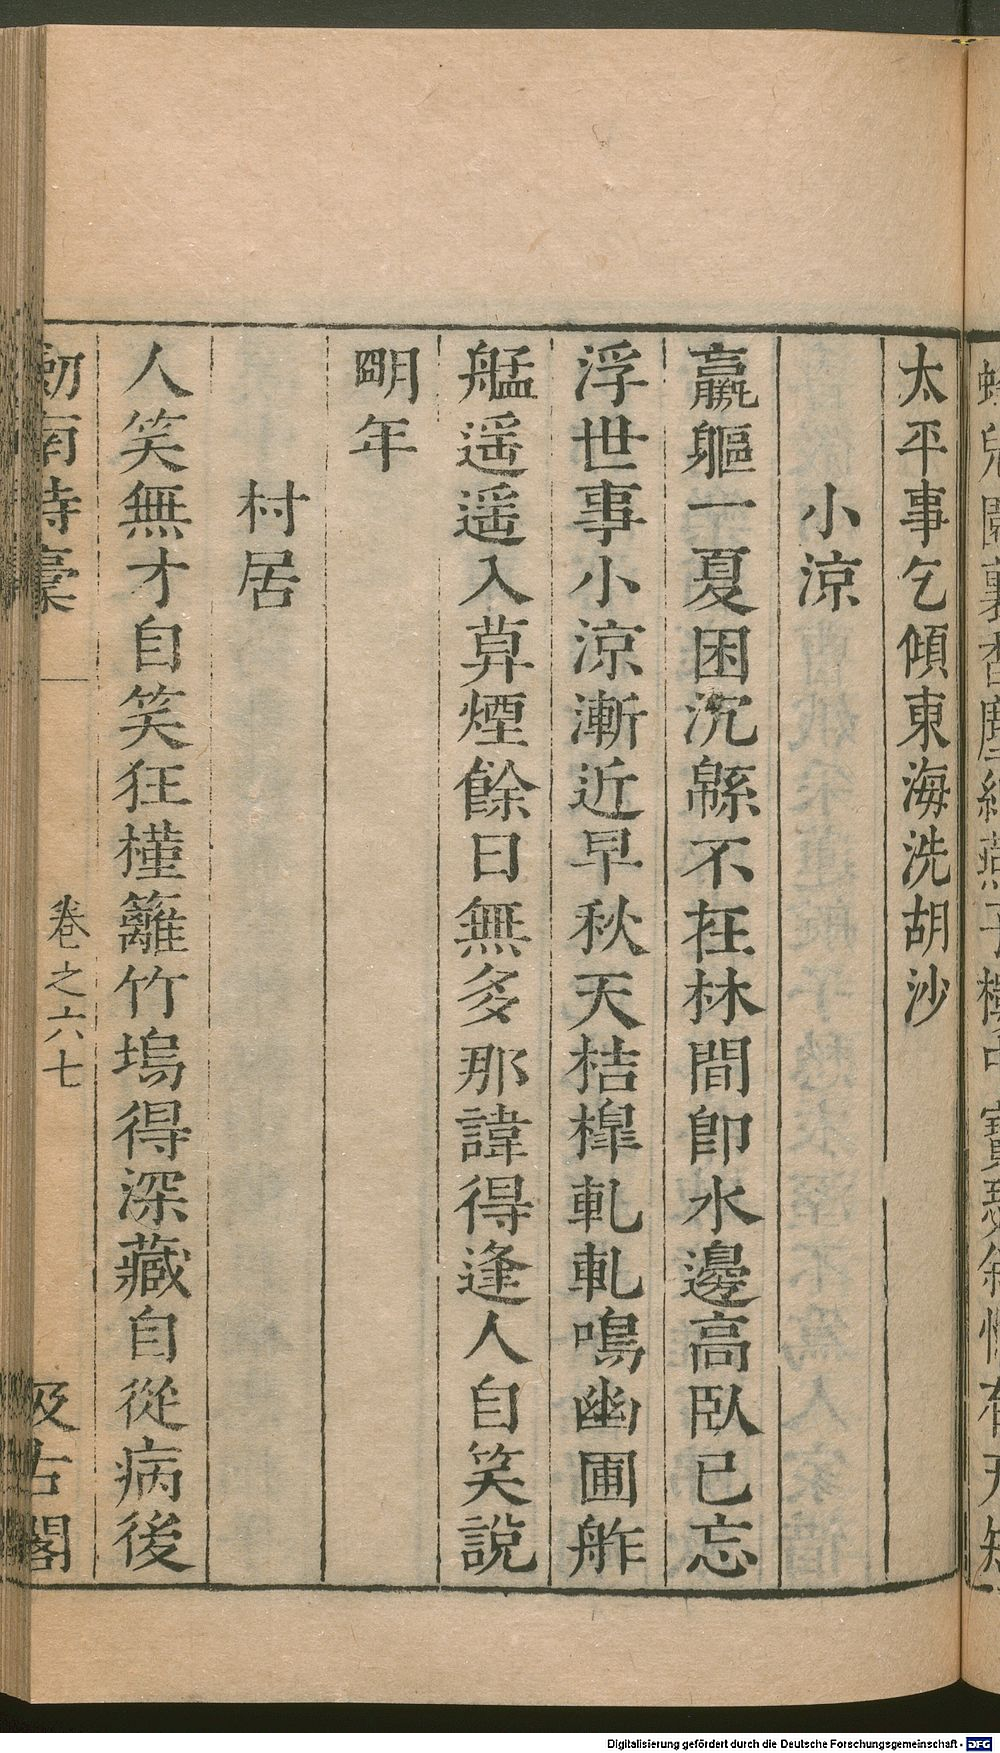 太平事乞傾東海洗胡沙
小涼
羸軀一夏困沉緜不在林間卽水邊高臥已忘
浮世事小涼漸近早秋天桔槹軋軋鳴幽圃舴
艋遥遥入莫煙餘日無多那諱得逢人自笑說
朙年
村居
人笑無才自笑狂槿籬竹塢得深藏自從病後
劒南詩槀
卷之六七
汲古閣
Digitalisierung gefördert durch die Deutsche Forschungsgemeinschaft - DFG